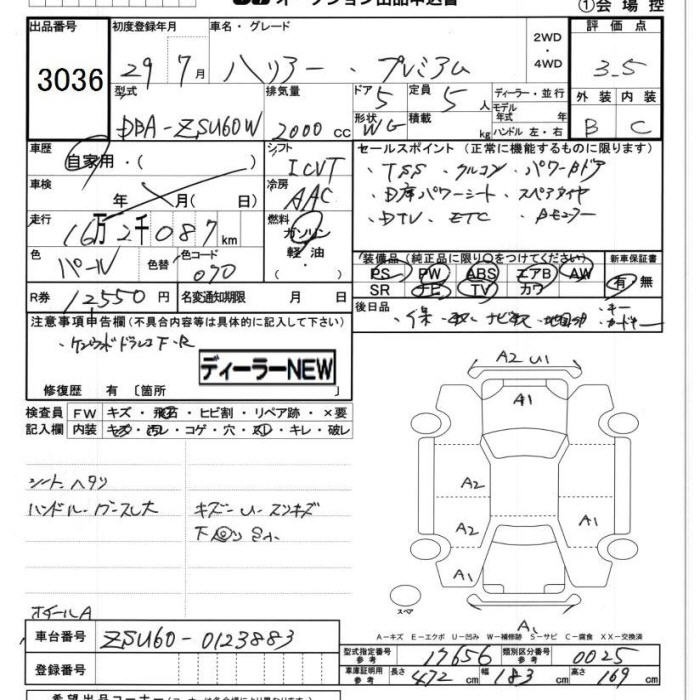 オークション出品申込書
①会場控
出品番号 初度登録年月 車名・グレード 2WD・4WD 評価点
3036 29年7月 ハリアー・プレミアム 3.5
型式 排気量 ドア 定員 ディーラー・並行 外装 内装
DBA-ZSU60W 2000cc 5 5人 モデル年式 年式 B C
形状 WG 積載 kg ハンドル 左・右
車歴 自家用・( ) シフト ICVT セールスポイント(正常に機能するものに限ります)
・TSS ・クルコン ・パワーBドア
車検 年 月( 日) 冷房 AAC
・D席パワーシート ・スペアタイヤ
走行 16万2千087km 燃料 ガソリン 軽油・( )
・DTV ・ETC ・Bモニター
色 パール 色替 色コード 070
装備品(純正品に限り○をつけてください) 新車保証書
PS PW ABS エアB AW 有・無
SR ナビ TV カワ
R券 12550円 名変通知期限 月 日
後日品 ・保・取・ナビ取・地図 ・キー・カードキー
注意事項申告欄(不具合内容等は具体的に記入して下さい)
・ケンウッドドラレコF・R
ディーラーNEW
修復歴 有〔箇所 〕
検査員 FW キズ・飛石・ヒビ割・リペア跡・×要
記入欄 内装 キズ・汚レ・コゲ・穴・スレ・キレ・破レ
シートヘタリ
ハンドル・ワーススレ大 キズー U・スリキズ
下回りサビ小
ホイールA
A2 U1
A1
A2
A2 A1
A1
スペア
A1
A−キズ E−エクボ U−凹み W−補修跡 S−サビ C−腐食 XX−交換済
車台番号 ZSU60-0123883
型式指定番号 参考 17656 類別区分番号 参考 0025
登録番号
車庫証明用 参考 長さ 472cm 幅 183cm 高さ 169cm
希望出品コーナー